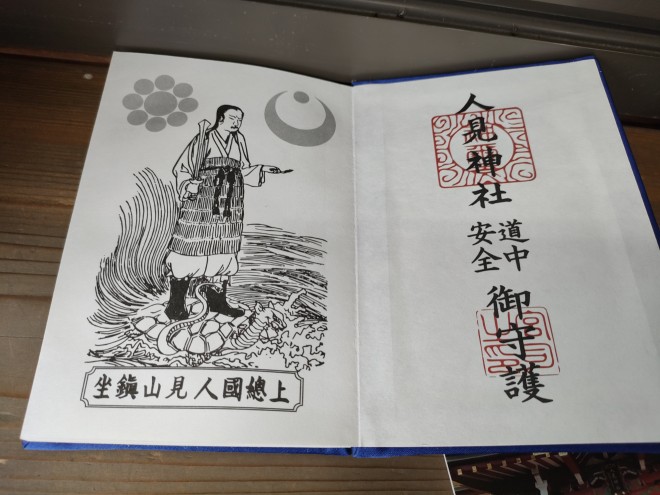 人見神社
道中
安全
御守護
上總國人見山鎭坐